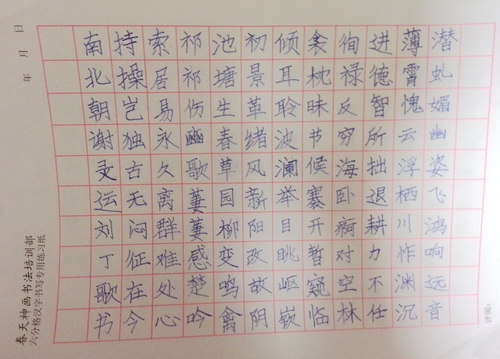 潜虬媚幽姿飞鸿响远音
薄霄愧云浮栖川怍渊沉
进德智所拙退耕力不任
徇禄反穷海卧痾对空林
衾枕昧节候褰开暂窥临
倾耳聆波澜举目眺岖嵚
初景革绪风新阳改故阴
池塘生春草园柳变鸣禽
祁祁伤豳歌萋萋感楚吟
索居易永久离群难处心
持操岂独古无闷征在今
南北朝谢灵运刘丁歌书
春天神画书法培训部
六分格汉字书写专用练习纸
年 月 日
评阅：